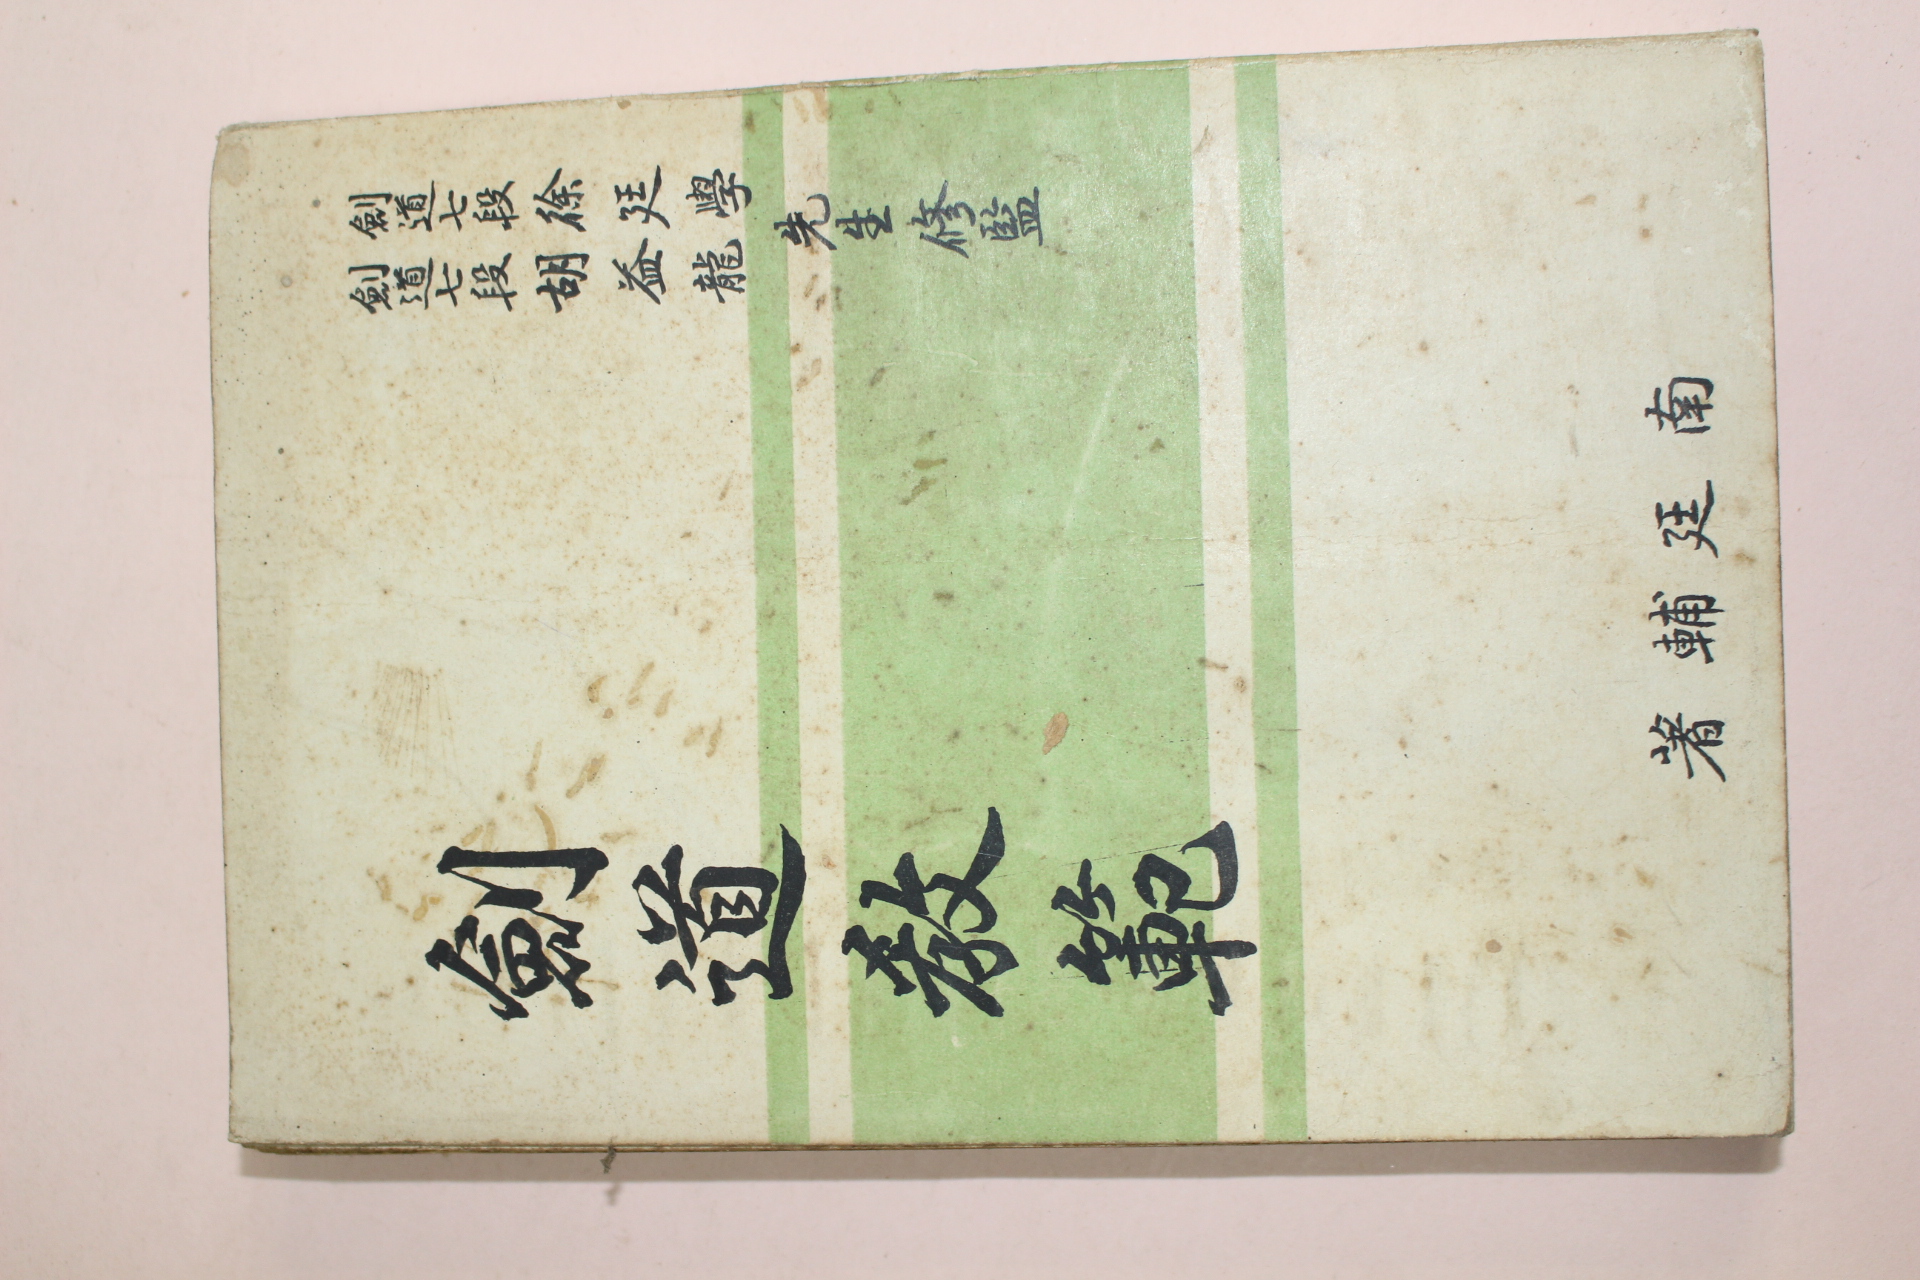 劍道七段 徐廷學
劍道七段 胡益龍
先生 修監
劍道教範
南廷輔著